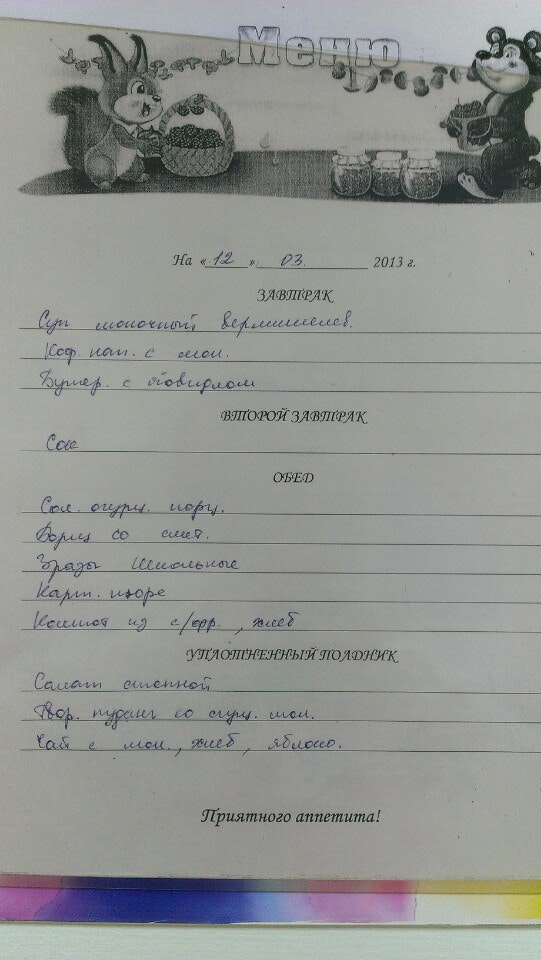 Меню
На «12» 03. 2013 г.
ЗАВТРАК
Суп молочный вермишелев.
Коф. нап. с мол.
Бутер. с повидлом
ВТОРОЙ ЗАВТРАК
Сок
ОБЕД
Сол. огурц. порц.
Борщ со смет.
Зразы Школьные
Карт. пюре
Компот из с/фр., хлеб
УПЛОТНЕННЫЙ ПОЛДНИК
Салат степной
Твор. пудинг со сгущ. мол.
Чай с мол., хлеб, яблоко.
Приятного аппетита!